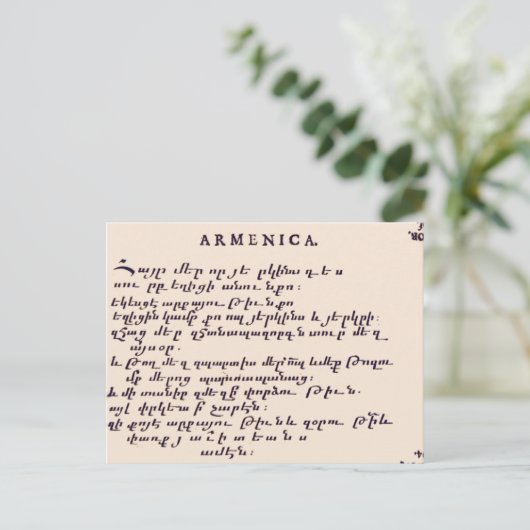 ARMENICA.
Հայր մեր որ յերկինս ես
սուրբ եղիցի անուն քո։
եկեսցէ արքայութիւն քո
եղիցին կամք քո որպ յերկինս և յերկրի։
զհաց մեր զհանապազորդ տուր մեզ
այսօր.
և թող մեզ զպարտիս մեր որպ և մեք թողու
մք մերոց պարտապանաց։
և մի տանիր զմեզ ի փորձութիւն.
այլ փրկեա ի չարէն։
զի քո է արքայութիւն և զօրութիւն
փառք յաւիտեանս
ամէն։